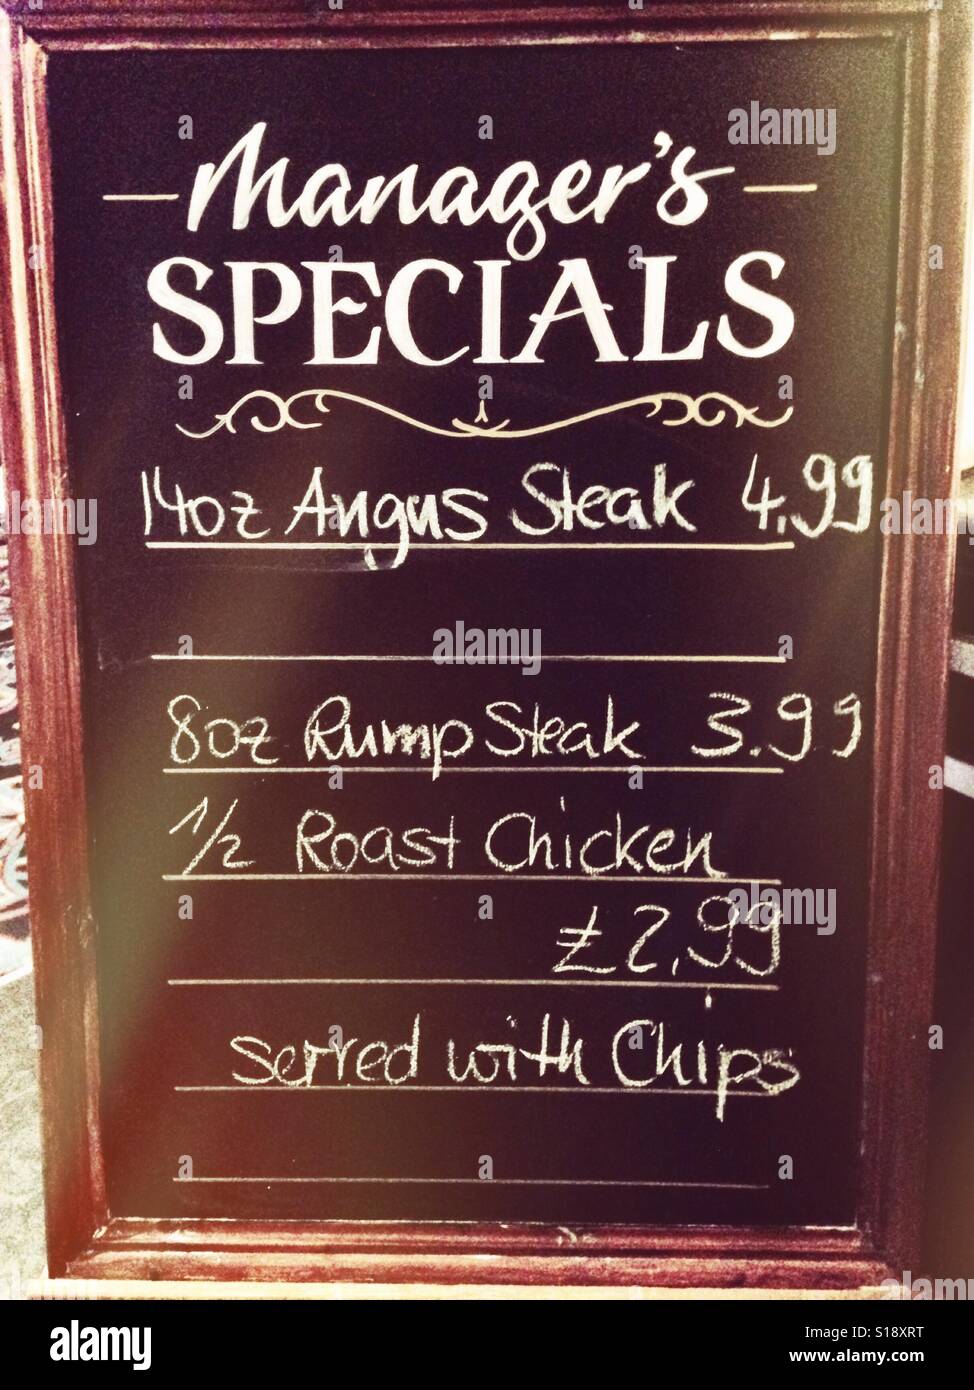 Manager's
SPECIALS
14oz Angus Steak 4.99
8oz Rump Steak 3.99
1/2 Roast Chicken
£2.99
served with Chips
alamy
Image ID: S18XRT
www.alamy.com